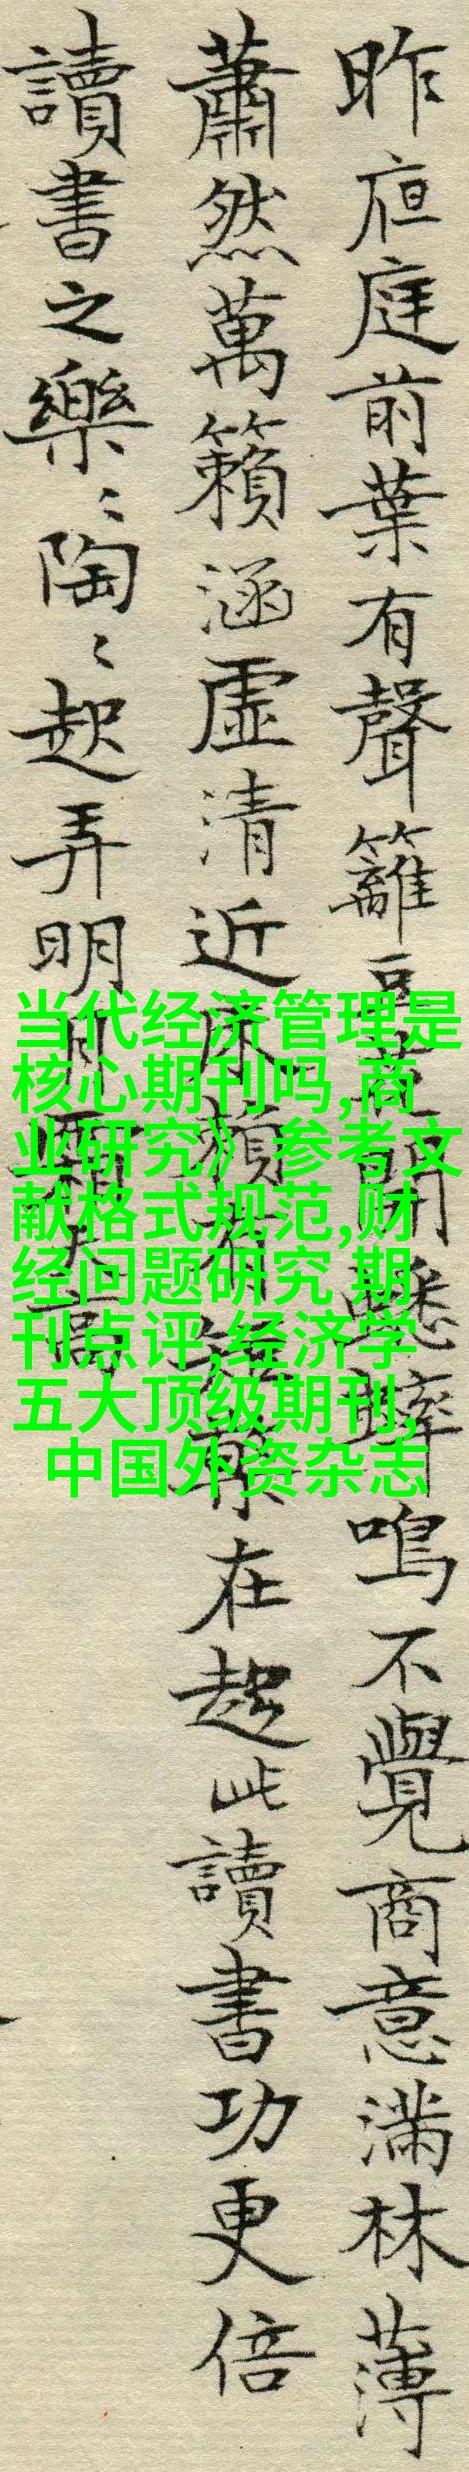 昨夜庭前葉有聲籬豆花開蟋蟀鳴不覺商意滿林薄
蕭然萬籟涵虛清近床賴有短檠在趁此讀書功更倍
讀書之樂〻陶〻起弄明月霜天高
当代经济管理是
核心期刊吗,商
业研究》 参考文
献格式规范,财
经问题研究 期
刊点评,经济学
五大顶级期刊,
中国外资杂志